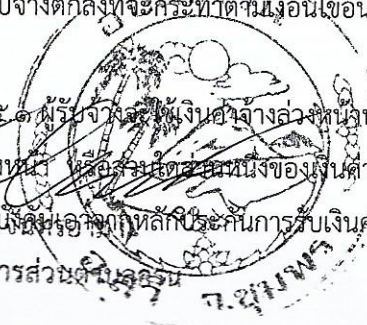 บจ้างตกลงที่จะกระทำตามเงื่อนไขอัน
๕.๑ ผู้รับจ้างจะใช้เงินค่าจ้างล่วงหน้า
หรือส่วนใดส่วนหนึ่งของเงินค่า
หลักประกันการรับเงินค
ารส่วนตำบล
จ.ชุมพร